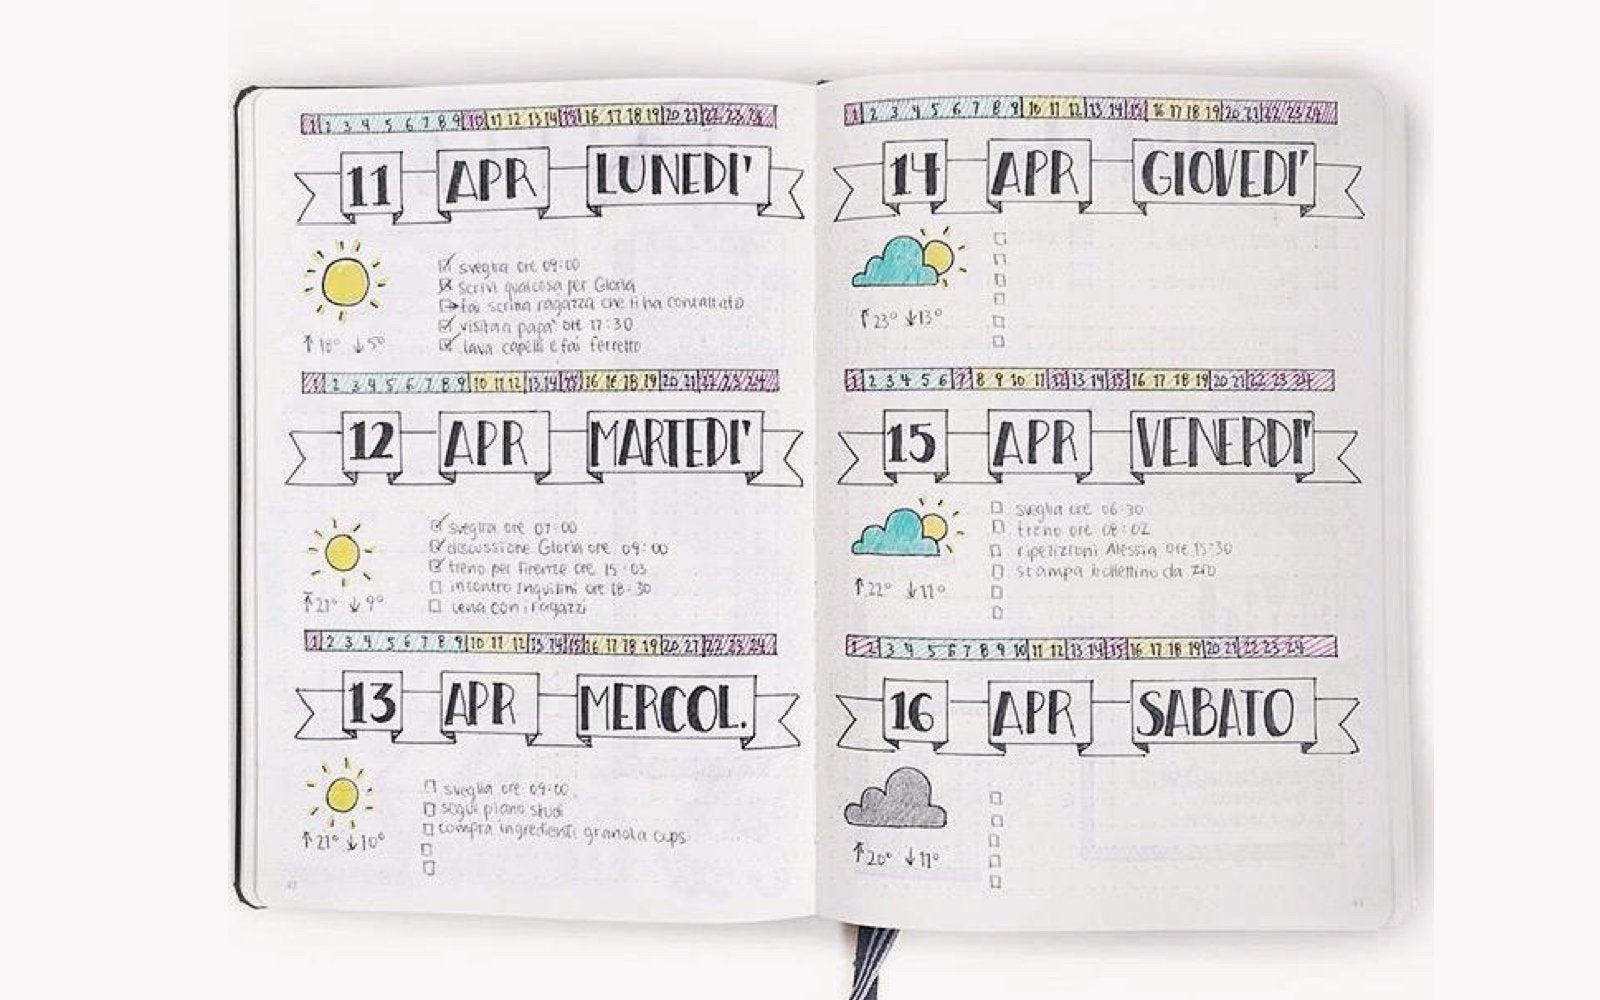 1 2 3 4 5 6 7 8 9 10 11 12 13 14 15 16 17 18 19 20 21 22 23 24
11 APR LUNEDI'
sveglia ore 09:00
scrivi qualcosa per Gloria
fai scrina ragazza che ti ha contattato
visita a papa' ore 17:30
lava capelli e fai ferretto
↑18° ↓5°
1 2 3 4 5 6 7 8 9 10 11 12 13 14 15 16 17 18 19 20 21 22 23 24
12 APR MARTEDI'
sveglia ore 07:00
discussione Gloria ore 09:00
treno per Firenze ore 15:03
incontro Inquilini ore 18:30
cena con i ragazzi
↑21° ↓9°
1 2 3 4 5 6 7 8 9 10 11 12 13 14 15 16 17 18 19 20 21 22 23 24
13 APR MERCOL.
sveglia ore 09:00
segui piano studi
compra ingredienti granola cups
↑21° ↓10°
1 2 3 4 5 6 7 8 9 10 11 12 13 14 15 16 17 18 19 20 21 22 23 24
14 APR GIOVEDI'
↑23° ↓13°
1 2 3 4 5 6 7 8 9 10 11 12 13 14 15 16 17 18 19 20 21 22 23 24
15 APR VENERDI'
sveglia ore 06:30
treno ore 08:02
ripetizioni Alessia ore 15:30
stampa bollettino da zio
↑22° ↓11°
1 2 3 4 5 6 7 8 9 10 11 12 13 14 15 16 17 18 19 20 21 22 23 24
16 APR SABATO
↑20° ↓11°